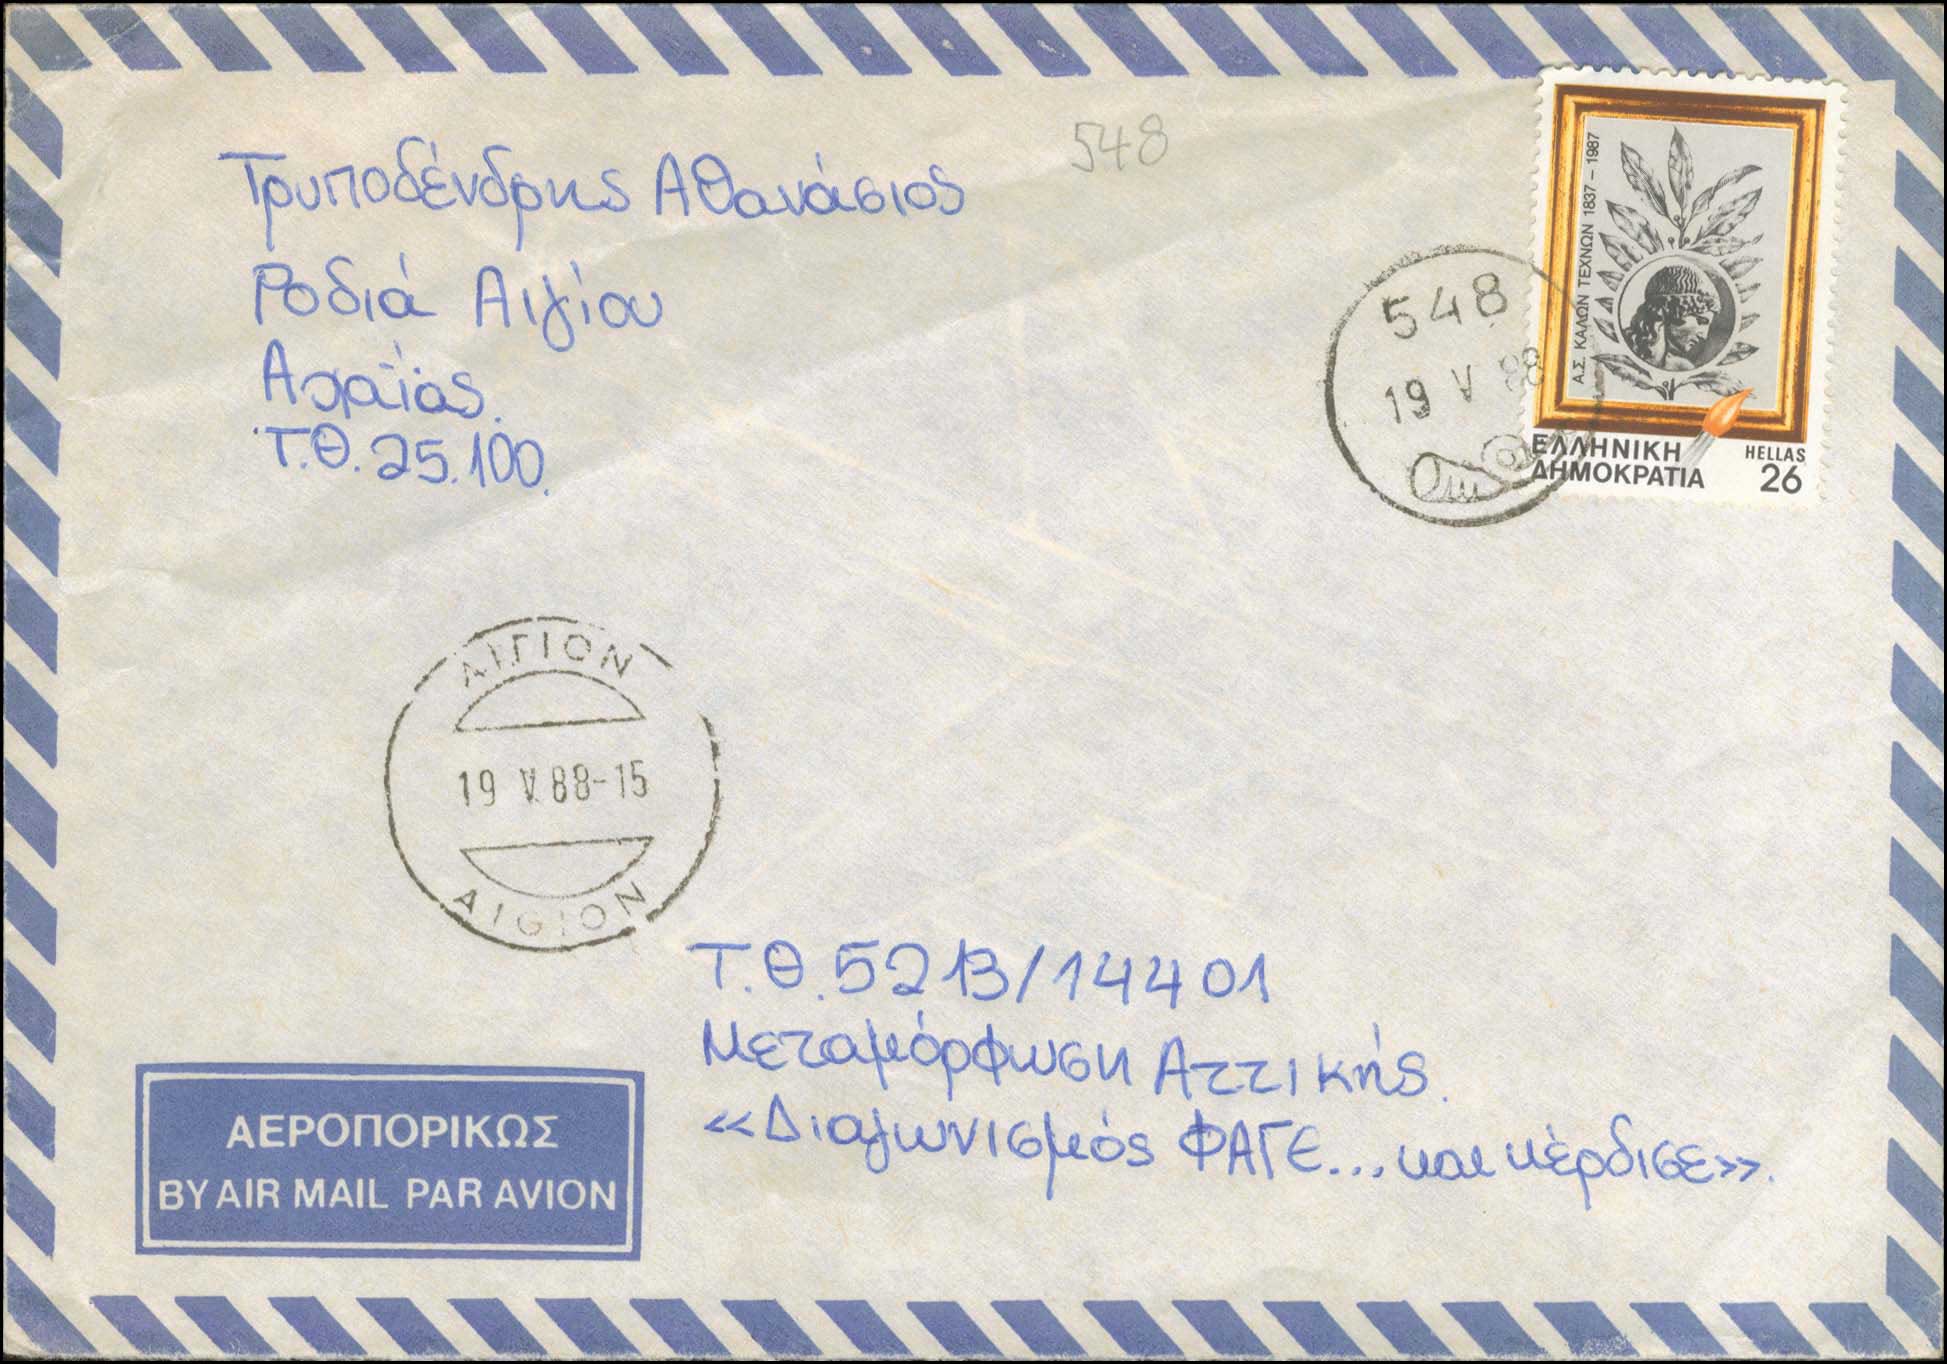 Τρυποδένδρης Αθανάσιος
Ροδιά Αιγίου
Αχαΐας.
Τ.Θ. 25.100.
548
Α.Σ. ΚΑΛΩΝ ΤΕΧΝΩΝ 1837 - 1987
ΕΛΛΗΝΙΚΗ
ΔΗΜΟΚΡΑΤΙΑ
HELLAS
26
548
19 V 88
ΑΙΓΙΟΝ
19 V 88-15
AIGION
Τ.Θ. 5213/14401
Μεταμόρφωση Αττικής.
«Διαγωνισμός ΦΑΓΕ... και κέρδισε».
ΑΕΡΟΠΟΡΙΚΩΣ
BY AIR MAIL PAR AVION